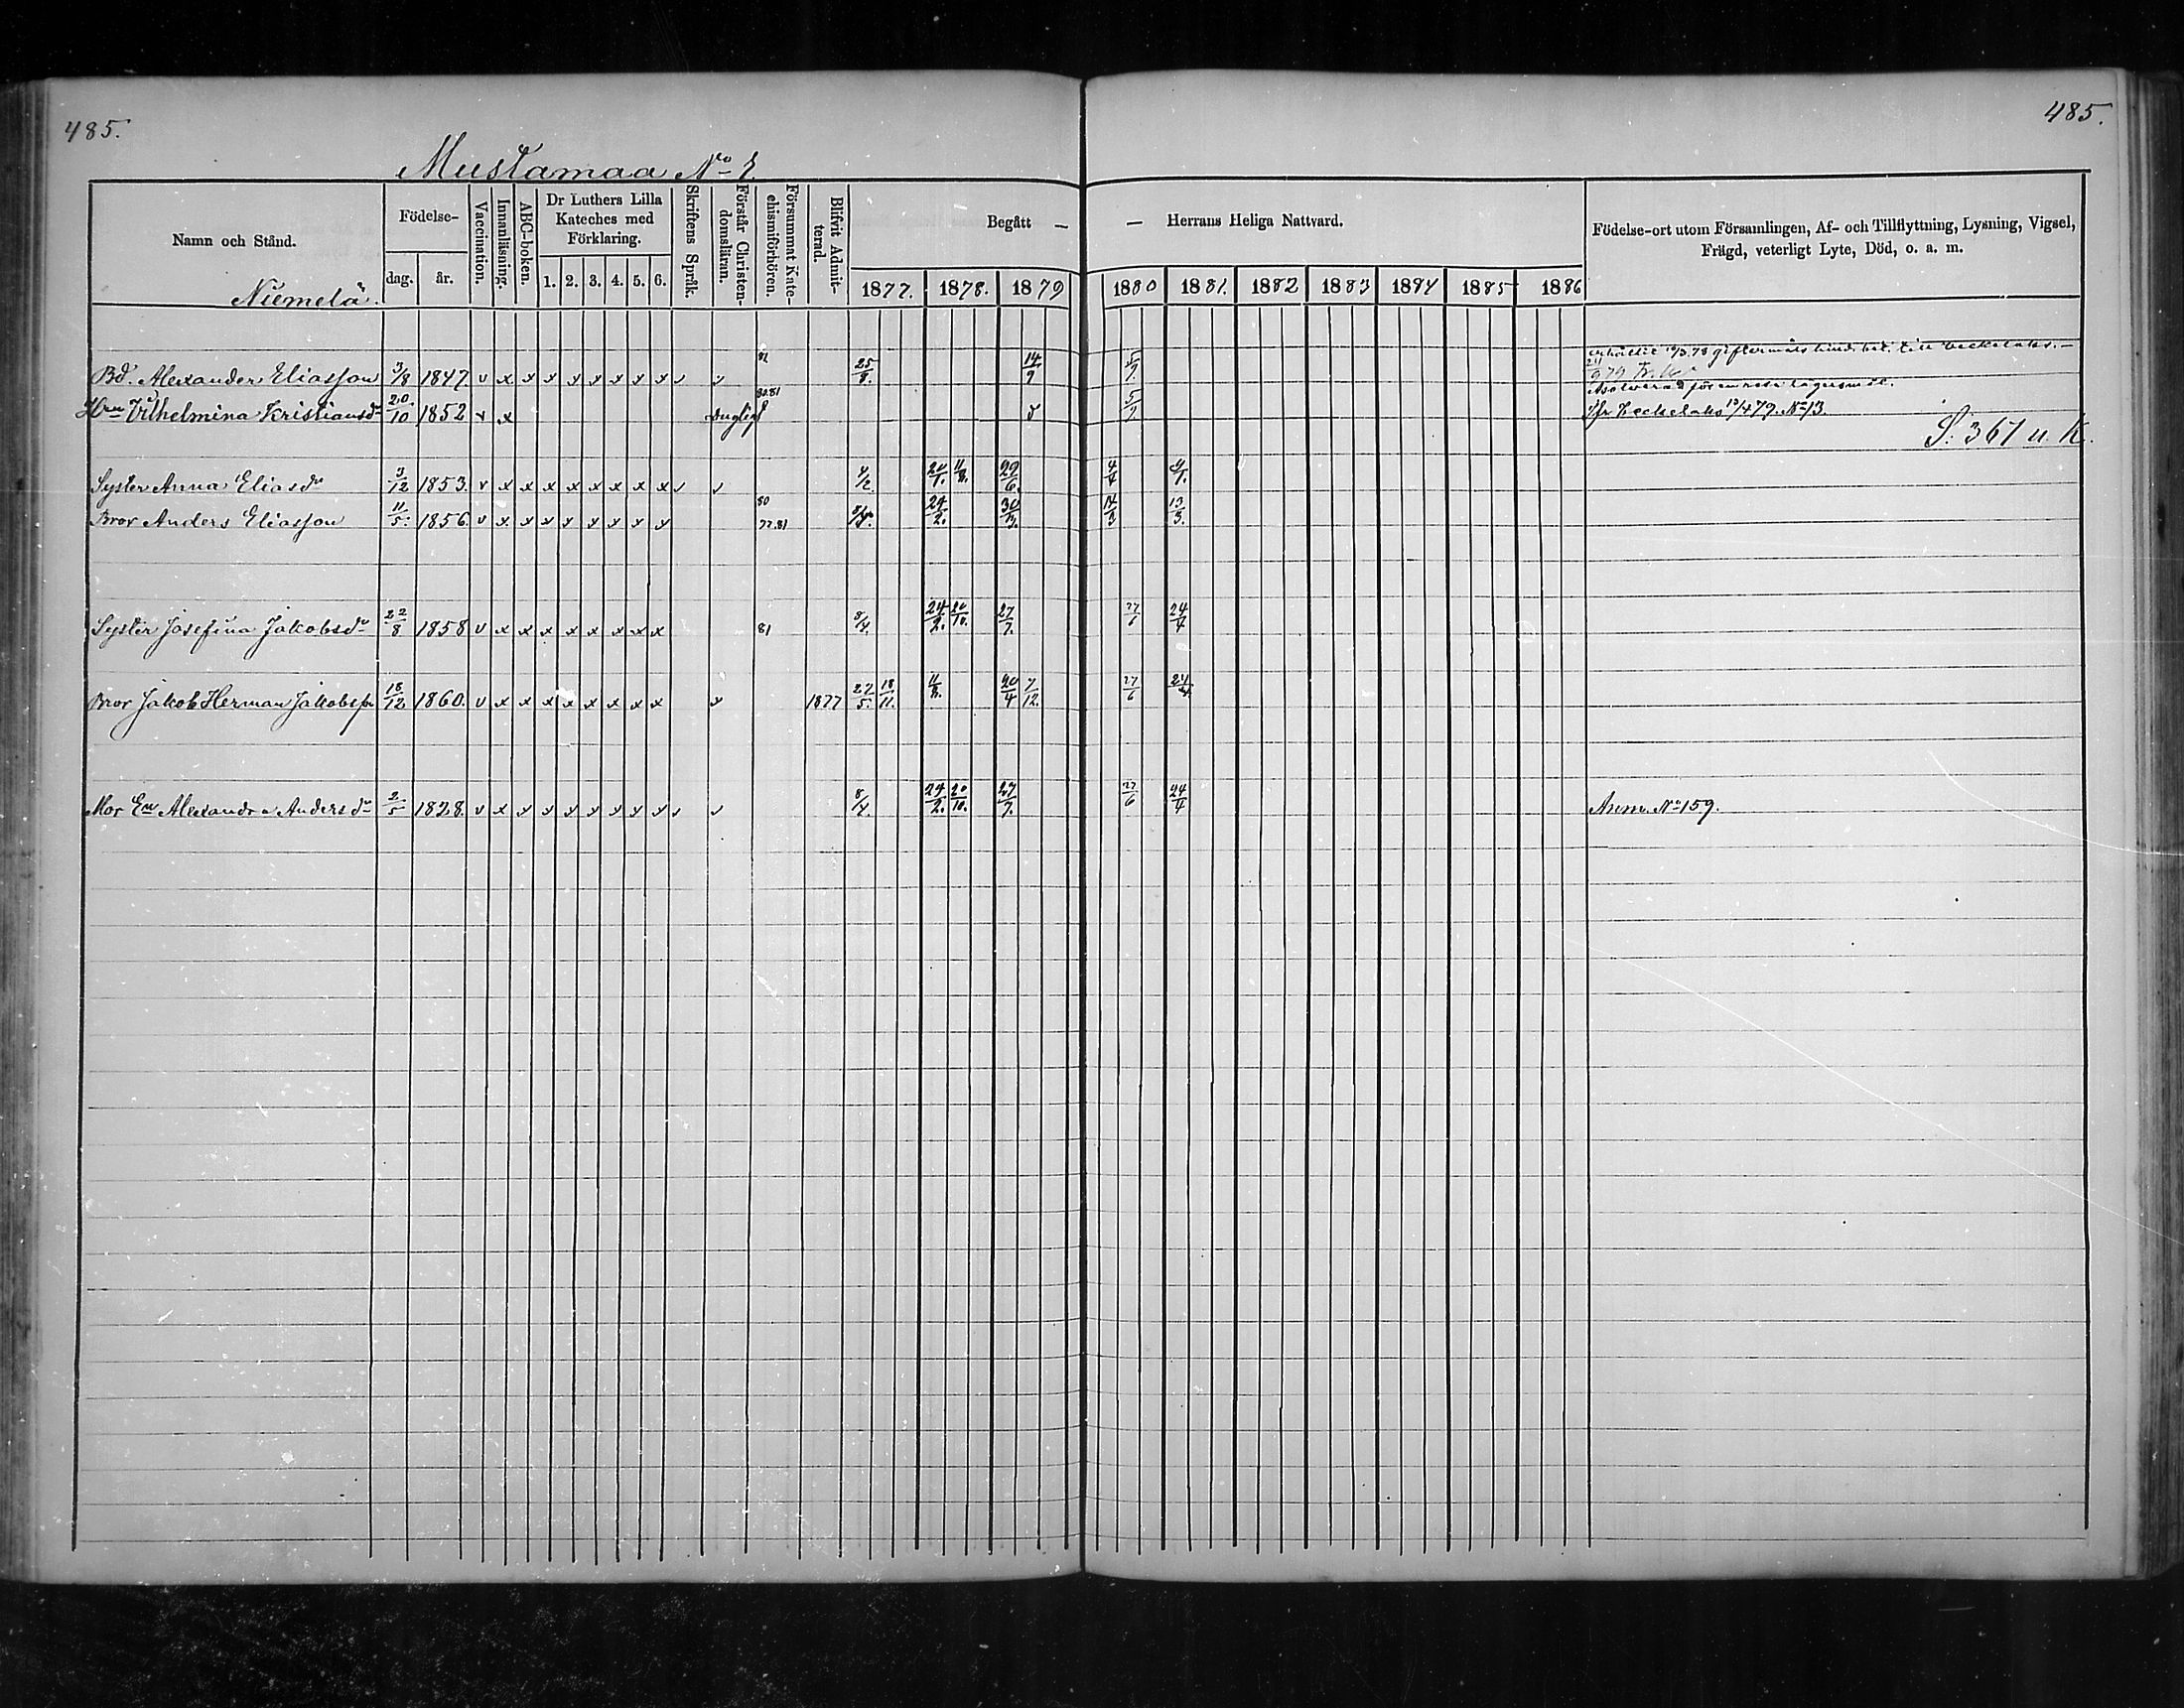 485.
485.
Mustamaa No
Namn och Stånd.
Födelse-
dag. år.
Vaccination.
Innanläsning.
ABC-boken.
Dr Luthers Lilla Kateches med Förklaring.
1. 2. 3. 4. 5. 6.
Skriftens Språk.
Förstår Christen-domsläran.
Försummat Kate-chismiförhören.
Blifvit Admit-terad.
Begått — — Herrans Heliga Nattvard.
1877. 1878. 1879 1880 1881. 1882 1883 1884 1885 1886
Födelse-ort utom Församlingen, Af- och Tillflyttning, Lysning, Vigsel,
Frägd, veterligt Lyte, Död, o. a. m.
Niemelä.
Bd. Alexander Eliasson 3/8 1847 v x x x x x x x x v v 81 25/8. 14/9 5/9.
Hru Vilhelmina Kristiansdr 20/10 1852 v x 80.81 5/9 No 13.
S: 367 u. K.
Syster Anna Eliasdr 3/12 1853. v x x x x x x x x v v 4/2. 29/6. 4/4
Bror Anders Eliasson 11/5. 1856. v x x x x x x x x 80 77.81 24/2. 30/3. 14/3 13/3.
Syster Josefina Jakobsdr 22/8 1858 v x x x x x x x x 81 8/4. 24/2. 20/10. 27/7. 27/6 24/4
Bror Jakob Herman Jakobsson 18/12 1860. v x x x x x x x x v 1877 27/5. 18/11. 20/4 7/12. 27/6 24/4
Mor En Alexandra Andersdr 2/5 1828. v x x x x x x x x v v 8/4. 24/2. 20/10. 27/7. 27/6 24/4 Anm. No 159.